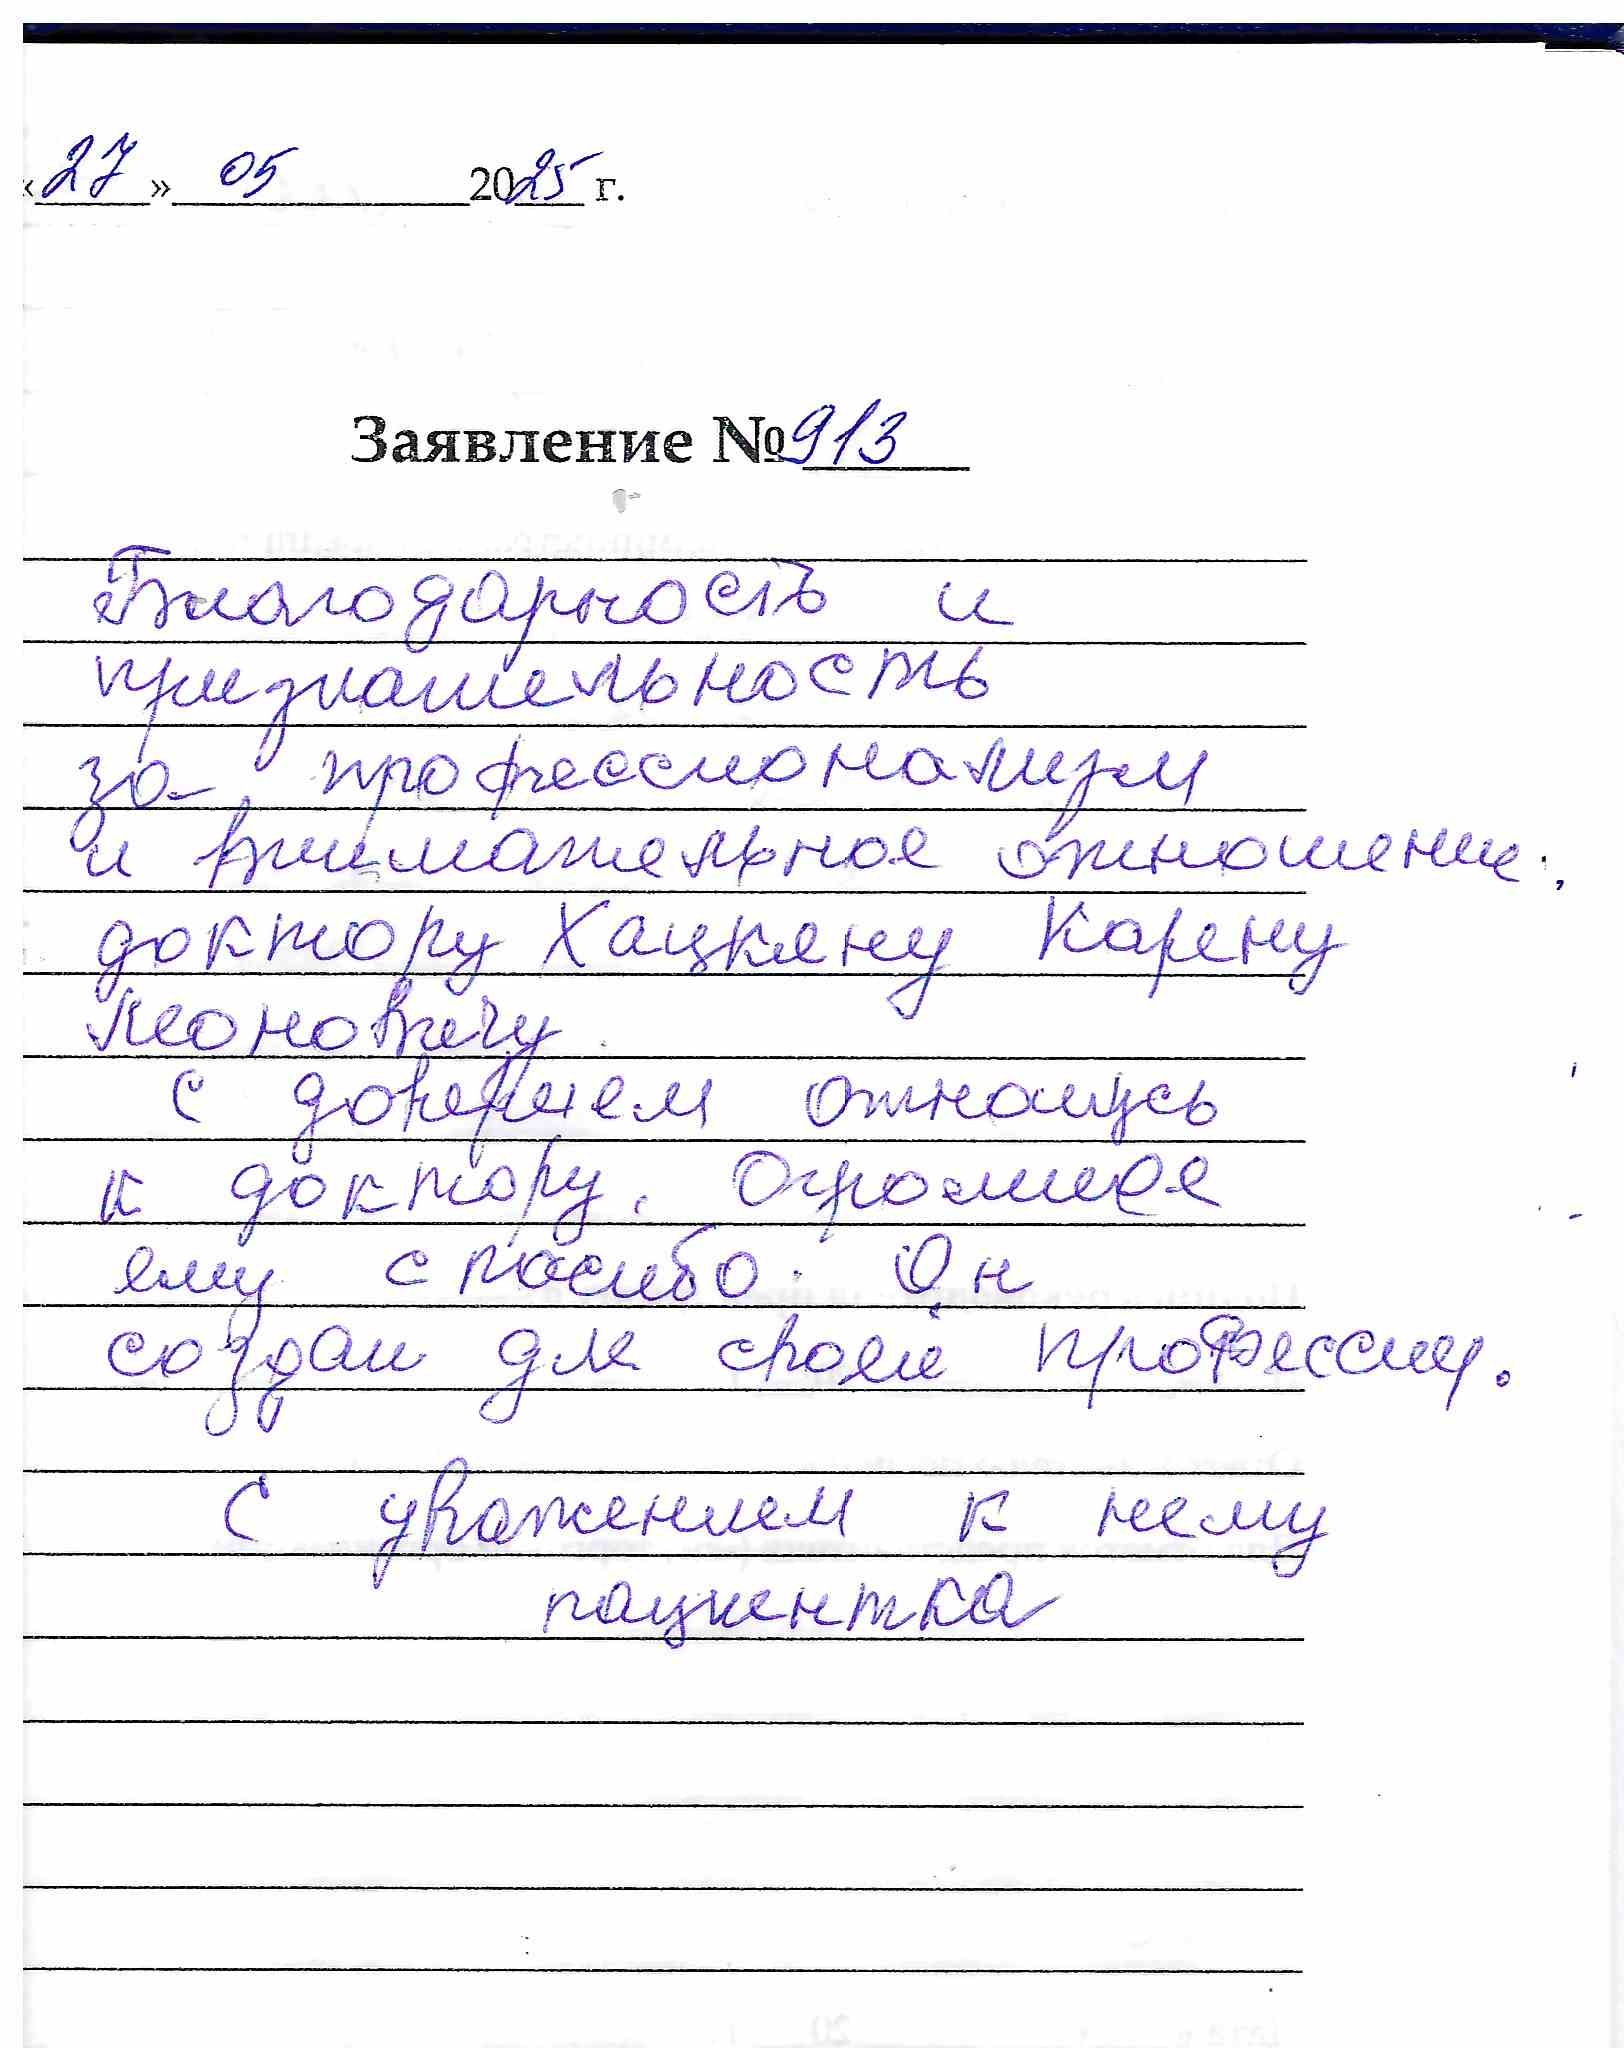 «27» 05 2025 г.
Заявление № 913
Благодарность и
признательность
за профессионализм
и внимательное отношение,
доктору Хацкяну Карену
Леоновичу
С доверием отношусь
к доктору. Огромное
ему спасибо. Он
создан для своей профессии.
С уважением к нему
пациентка